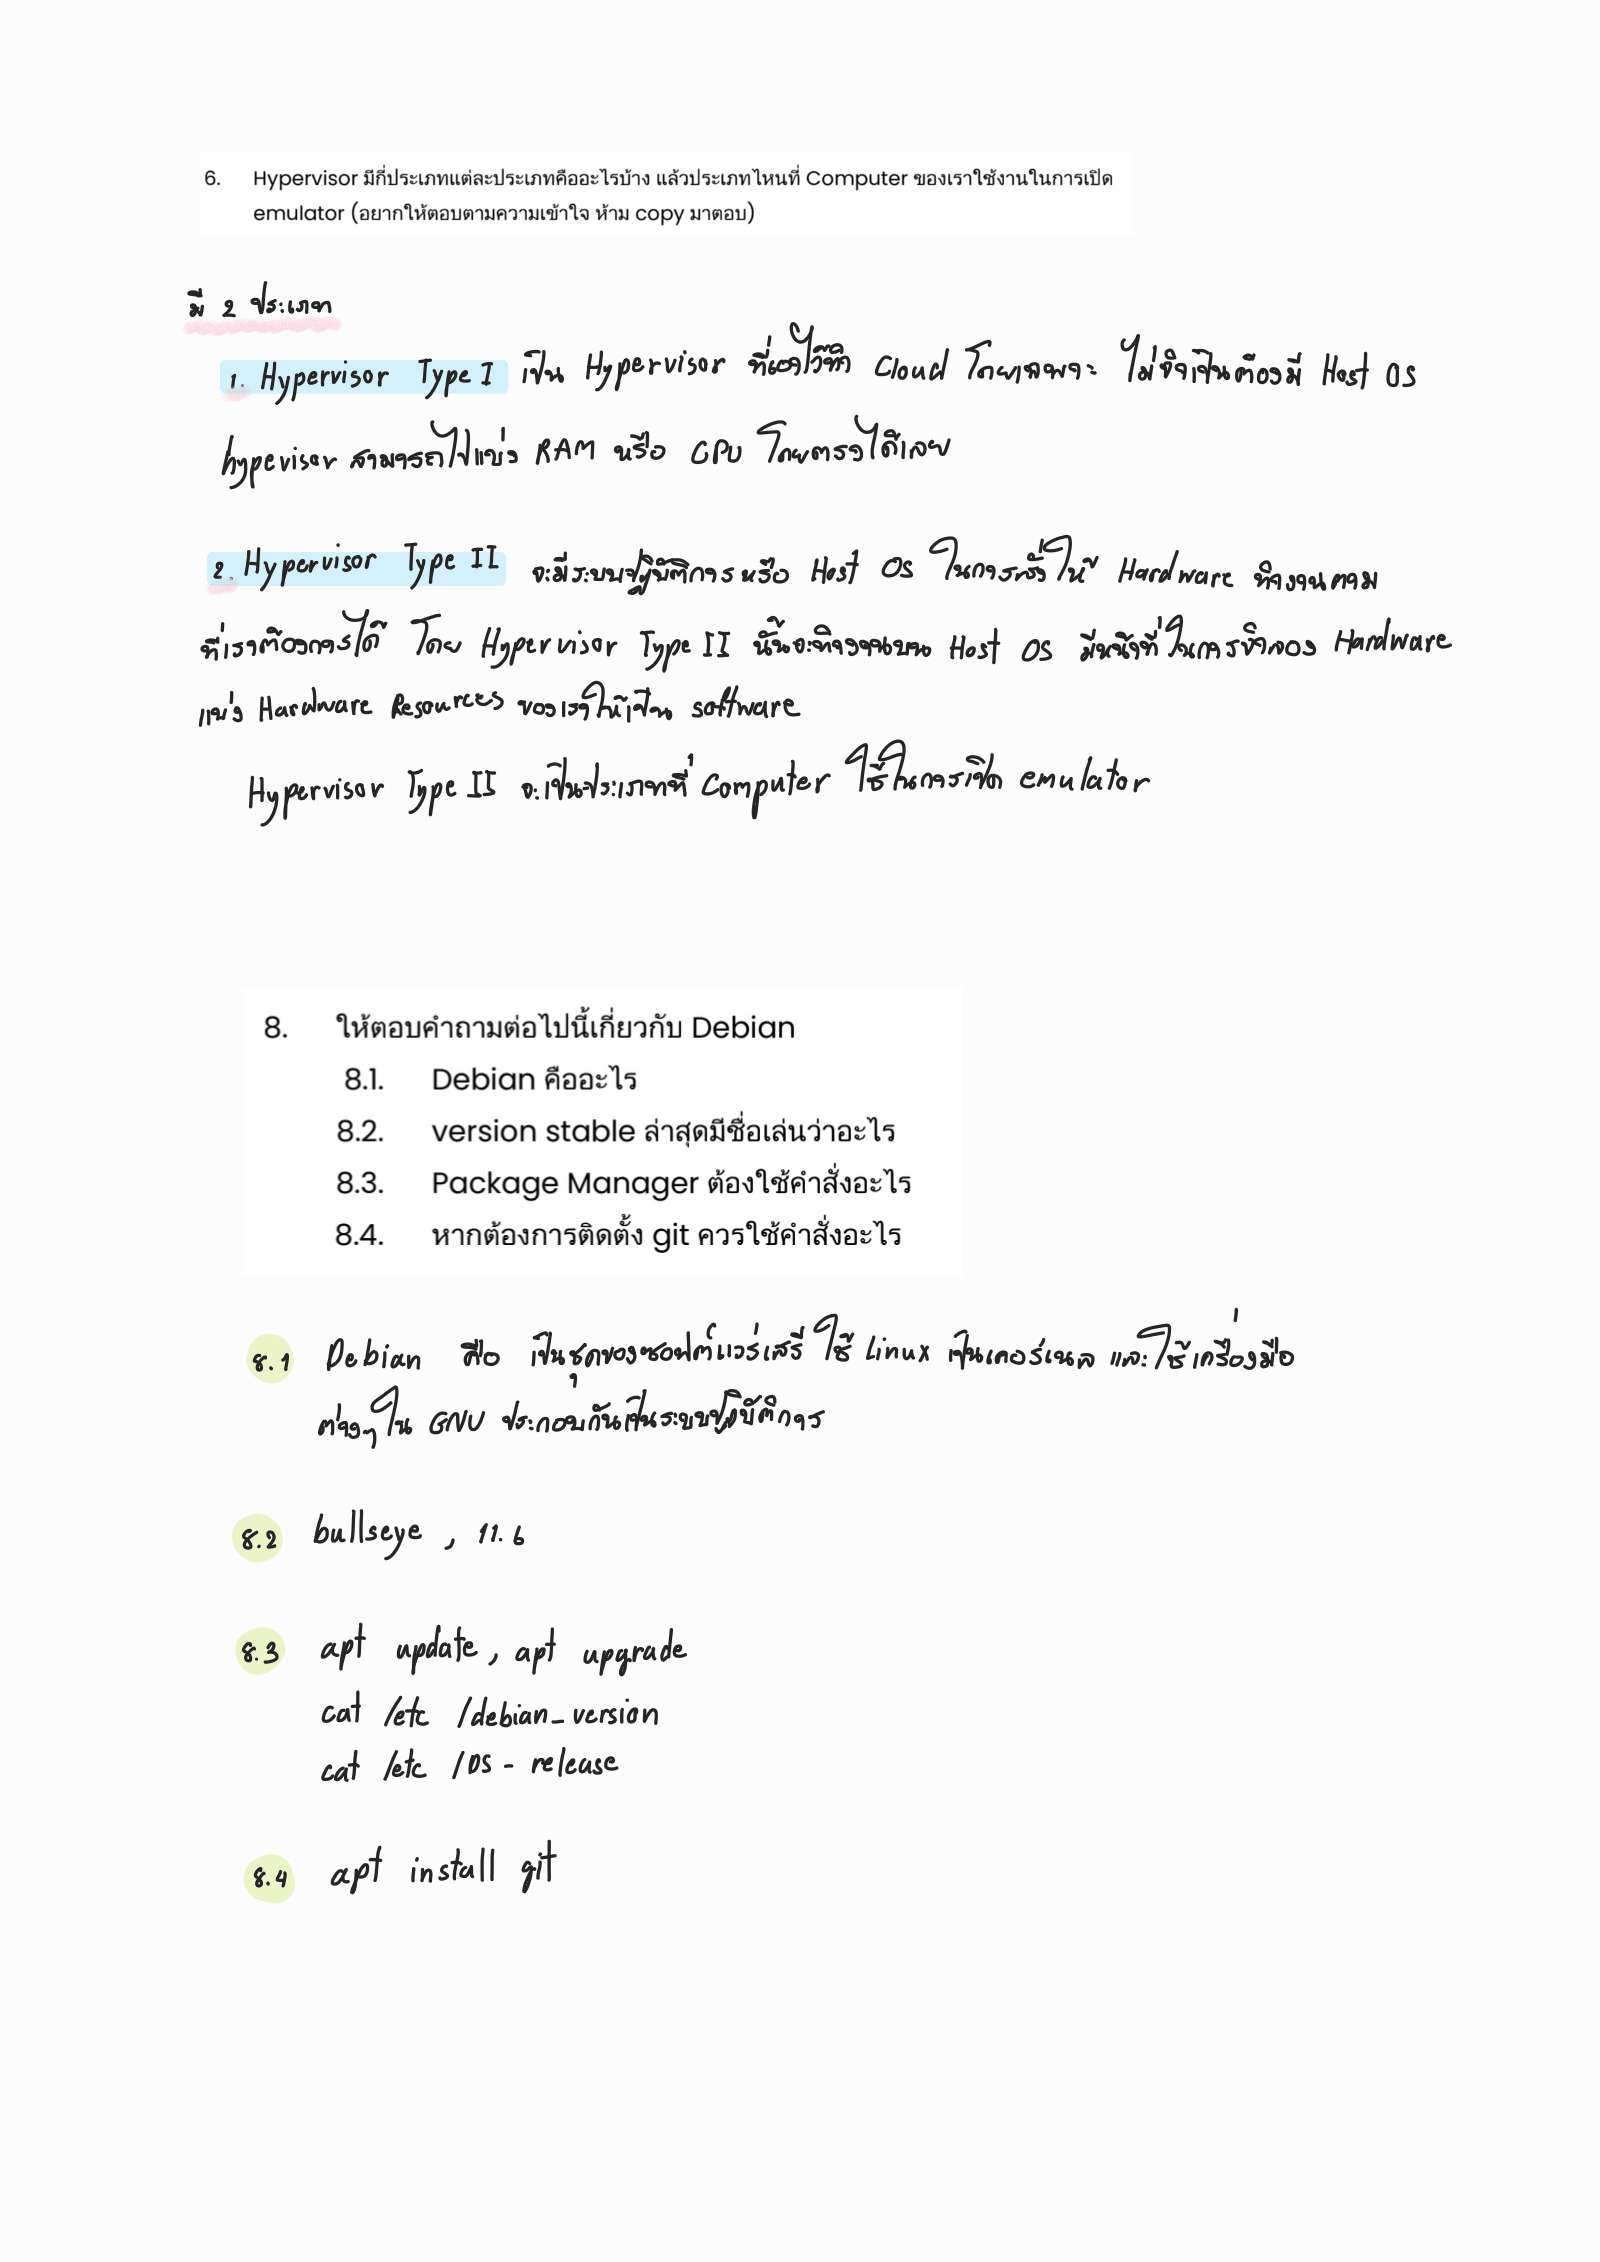 6. Hypervisor มีกี่ประเภทแต่ละประเภทคืออะไรบ้าง แล้วประเภทไหนที่ Computer ของเราใช้งานในการเปิด
emulator (อยากให้ตอบตามความเข้าใจ ห้าม copy มาตอบ)
มี 2 ประเภท
1. Hypervisor Type I เป็น Hypervisor ที่เอาไว้ทำ Cloud โดยเฉพาะ ไม่จำเป็นต้องมี Host OS
hypevisor สามารถไปแบ่ง RAM หรือ CPU โดยตรงได้เลย
2. Hypervisor Type II จะมีระบบปฏิบัติการหรือ Host OS ในการสั่งให้ Hardware ทำงานตาม
ที่เราต้องการได้ โดย Hypervisor Type II นั้นจะทำงานบน Host OS มีหน้าที่ในการจำลอง Hardware
แบ่ง Hardware Resources ของเราให้เป็น software
Hypervisor Type II จะเป็นประเภทที่ Computer ใช้ในการเปิด emulator
8. ให้ตอบคำถามต่อไปนี้เกี่ยวกับ Debian
8.1. Debian คืออะไร
8.2. version stable ล่าสุดมีชื่อเล่นว่าอะไร
8.3. Package Manager ต้องใช้คำสั่งอะไร
8.4. หากต้องการติดตั้ง git ควรใช้คำสั่งอะไร
8.1 Debian คือ เป็นชุดของซอฟต์แวร์เสรี ใช้ Linux เป็นเคอร์เนล และใช้เครื่องมือ
ต่างๆใน GNU ประกอบกันเป็นระบบปฏิบัติการ
8.2 bullseye , 11.6
8.3 apt update, apt upgrade
cat /etc /debian_version
cat /etc /OS - release
8.4 apt install git